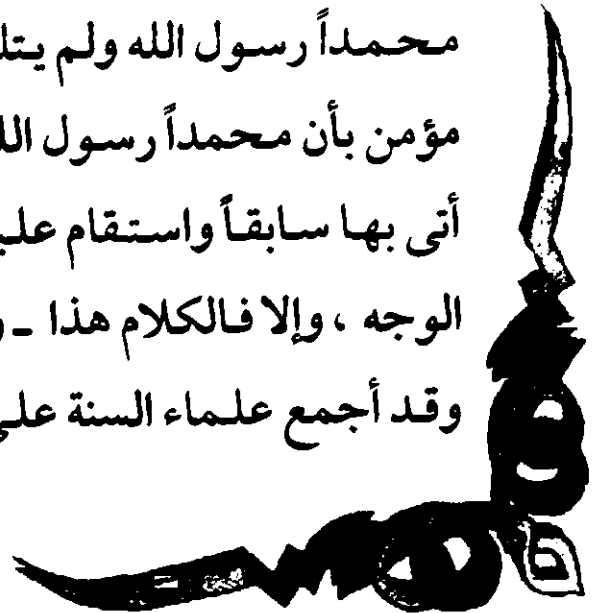 محمداً رسول الله ولم يتلـ
مؤمن بأن محمداً رسول اللـ
أتى بها سابقاً واستقام عليـ
الوجه ، وإلا فالكلام هذا ـ و
وقد أجمع علماء السنة على